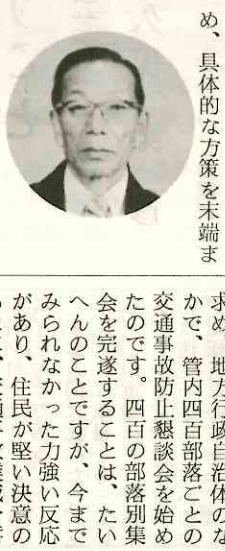 め、具体的な方策を末端ま
求め、地方行政自治体のな
かで、管内四百部落ごとの
交通事故防止懇談会を始め
たのです。四百の部落別集
会を完遂することは、たい
へんのことですが、今まで
みられなかった力強い反応
があり、住民が堅い決意の